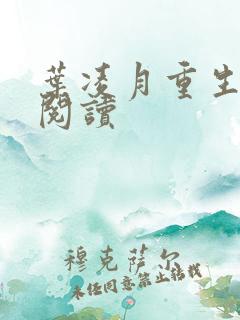 葉凌月重生
閱讀
穆克薩爾
未經同意禁止轉載